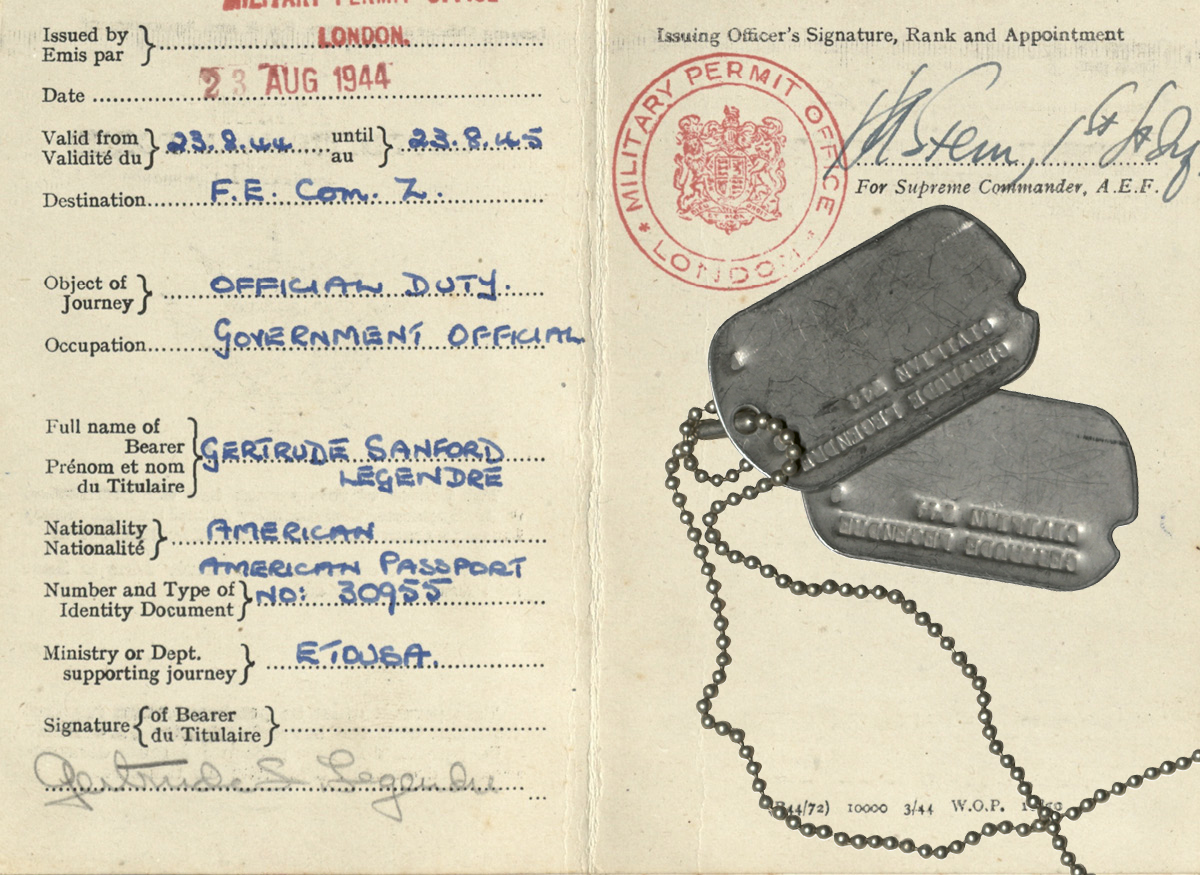 MILITARY PERMIT OFFICE
Issued by
Emis par
LONDON.
Date 23 AUG 1944
Valid from
Validité du
23.8.44
until
au
23.8.45
Destination F.E. Com. Z.
Object of
Journey
OFFICIAL DUTY.
Occupation GOVERNMENT OFFICIAL
Full name of
Bearer
Prénom et nom
du Titulaire
GERTRUDE SANFORD
LEGENDRE
Nationality
Nationalité
AMERICAN
AMERICAN PASSPORT
Number and Type of
Identity Document
NO: 30955
Ministry or Dept.
supporting journey
ETOUSA.
Signature
of Bearer
du Titulaire
Gertrude S Legendre
Issuing Officer's Signature, Rank and Appointment
MILITARY PERMIT OFFICE
* LONDON *
Stem, 1st Lt
For Supreme Commander, A.E.F.
GERTRUDE LEGENDRE
CIVILIAN
GERTRUDE LEGENDRE
CIVILIAN
44/72) 10000 3/44 W.O.P.